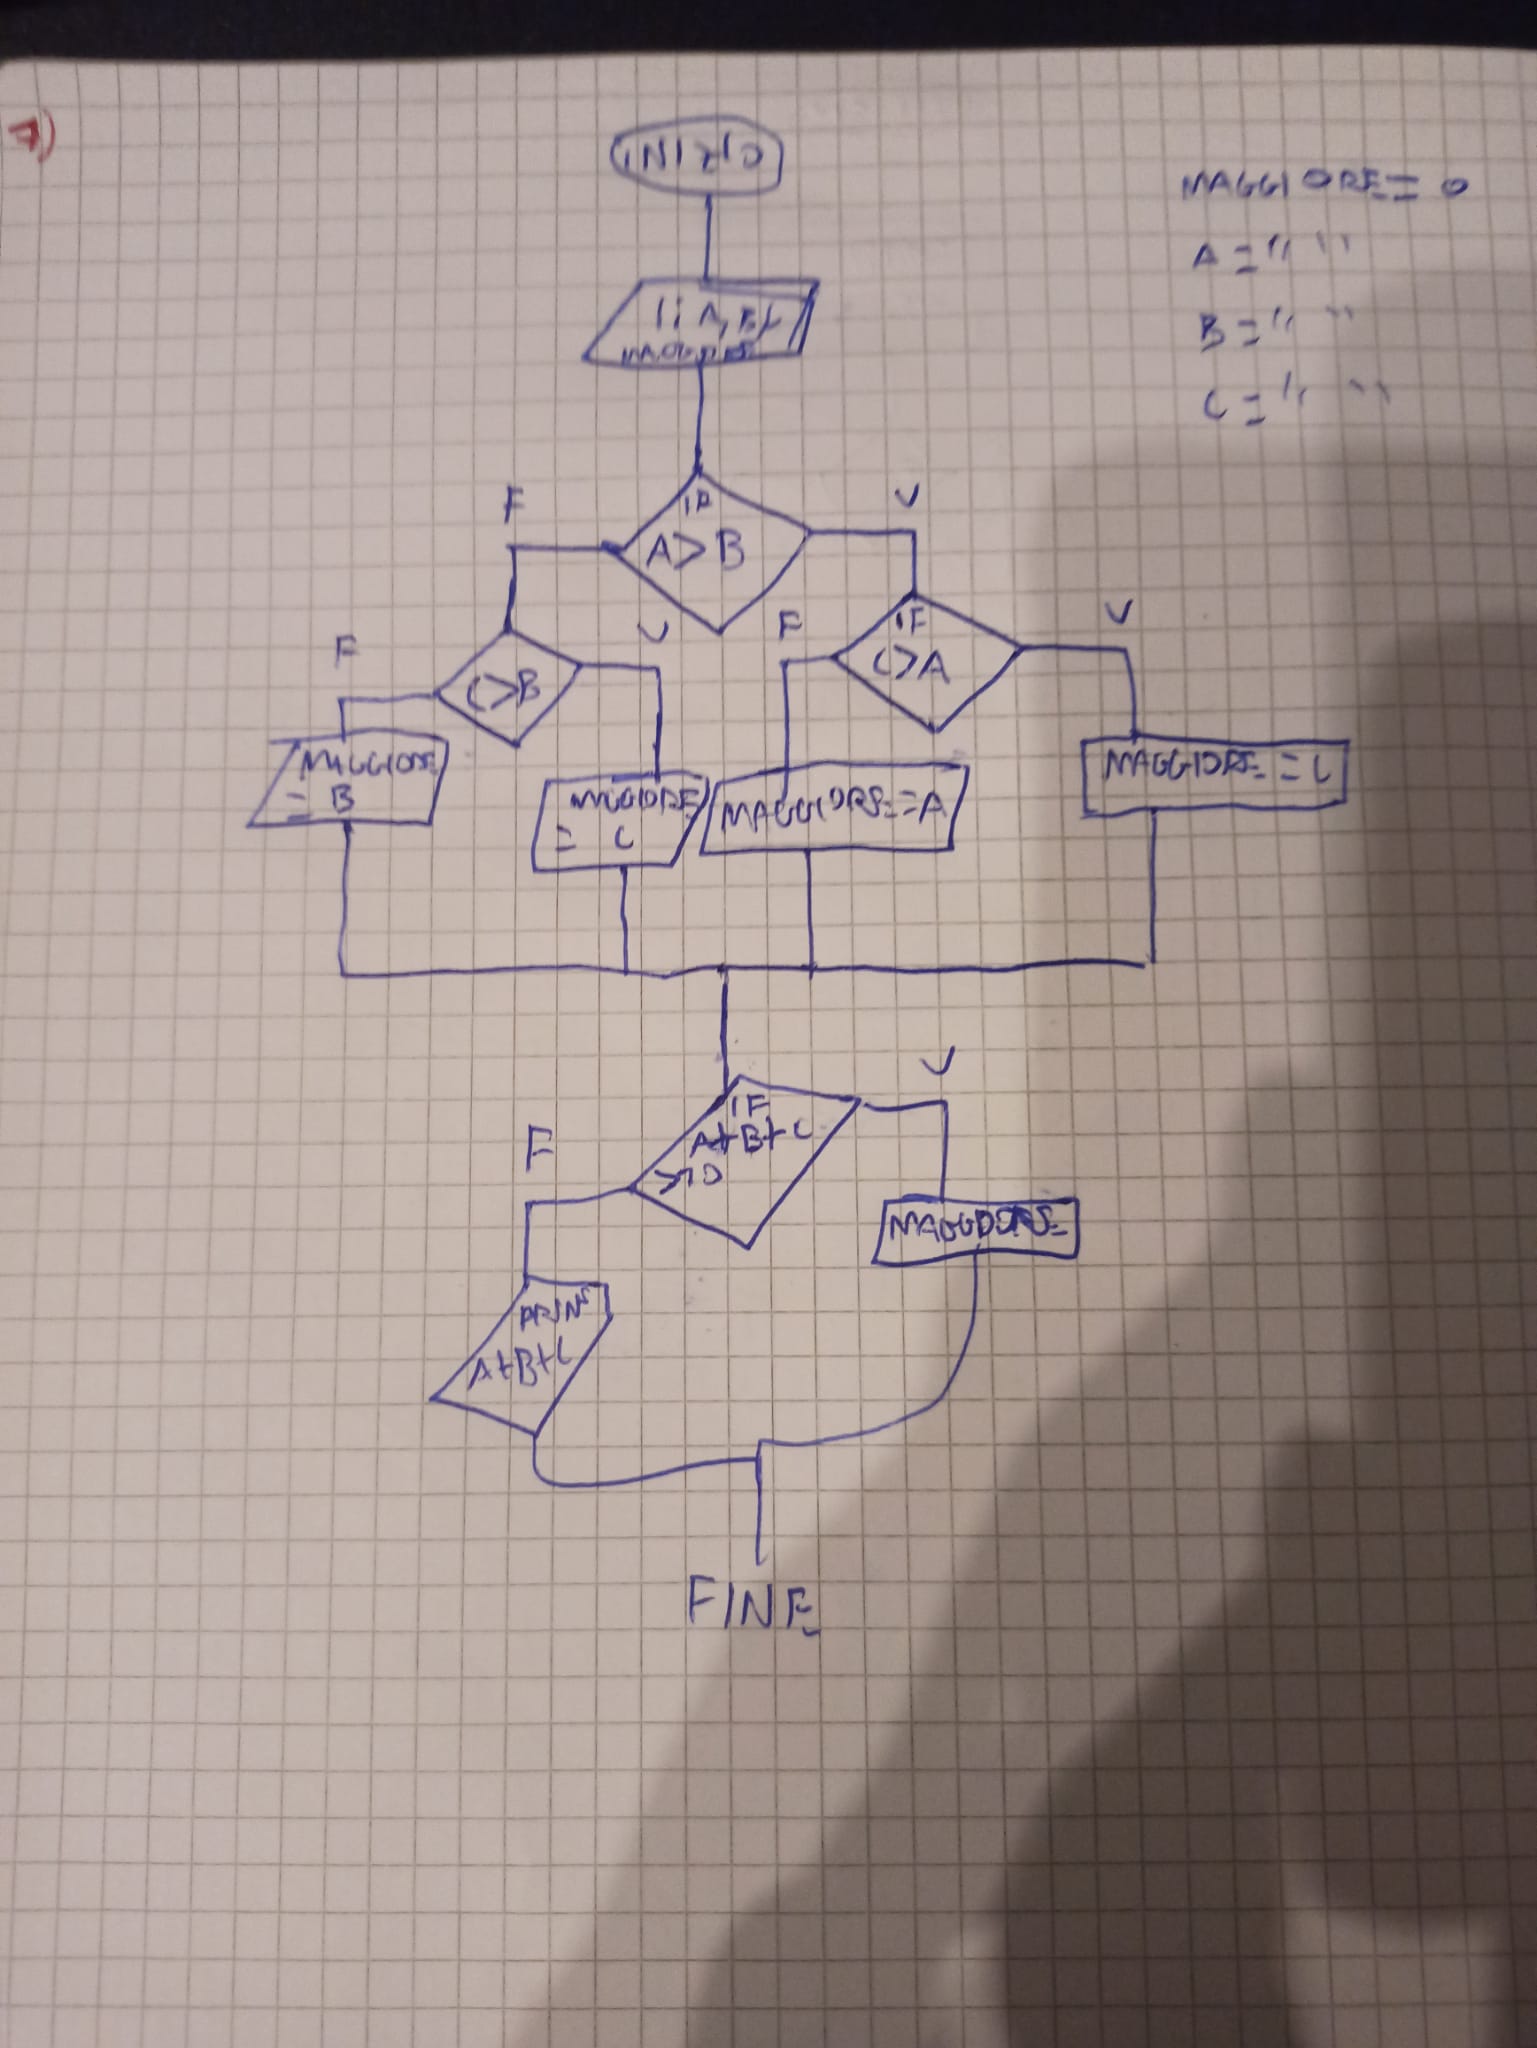 7)
INIZIO
MAGGIORE = 0
A = " "
B = " "
C = " "
A, B, C
MAGGIORE
F
V
IF
A > B
F
V
F
IF
C > A
V
C > B
MAGGIORE
= B
MAGGIORE
= C
MAGGIORE = A
MAGGIORE = C
F
V
IF
A+B+C
MAGGIORE
A+B+C
FINE